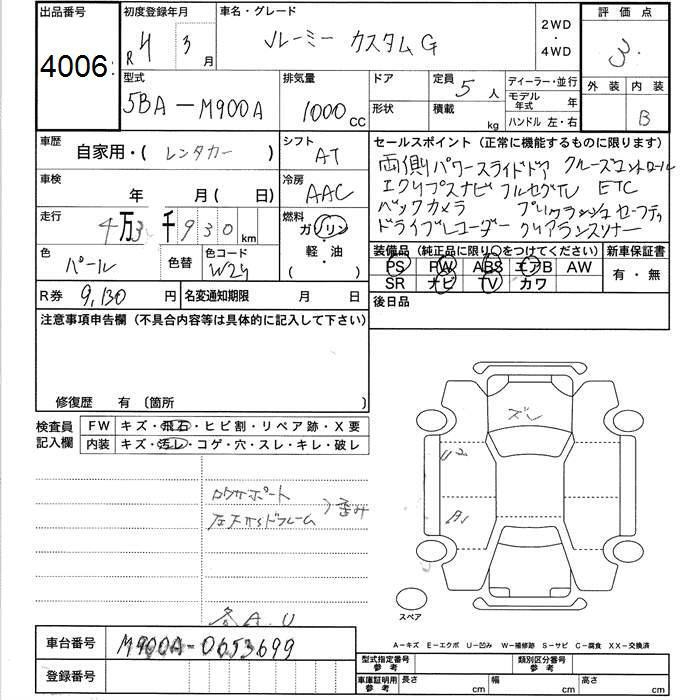 出品番号 初度登録年月 車名・グレード 2WD ・ 4WD 評価点
4006 R 4 3月 ルーミー カスタムG 3
外装 内装
B
型式 排気量 ドア 定員 5人 ディーラー・並行
5BA-M900A 1000cc 形状 積載 kg モデル年式 年
ハンドル 左・右
車歴 自家用・( レンタカー ) シフト AT
セールスポイント (正常に機能するものに限ります)
両側パワースライドドア クルーズコントロール
エクリプスナビ フルセグTV ETC
バックカメラ プリクラッシュセーフティ
ドライブレコーダー クリアランスソナー
車検 年 月( 日) 冷房 AAC
走行 4万3千930km 燃料 ガソリン・軽油・( )
色 パール 色替 色コード W24
装備品 (純正品に限り〇をつけてください) 新車保証書
PS PW ABS エアB AW 有・無
SR ナビ TV カワ
R券 9,130円 名変通知期限 月 日
後日品
注意事項申告欄 (不具合内容等は具体的に記入して下さい)
修復歴 有 〔箇所 〕
検査員記入欄 FW キズ・飛石・ヒビ割・リペア跡・X要
内装 キズ・汚レ・コゲ・穴・スレ・キレ・破レ
ズレ
U2
A1
ロワサポート
左フロントサイドフレーム 〉歪み
各A.U
スペア
A-キズ E-エクボ U-凹み W-補修跡 S-サビ C-腐食 XX-交換済
車台番号 M900A-0653699
登録番号
型式指定番号 参考 類別区分番号 参考
車庫証明用 参考 長さ cm 幅 cm 高さ cm